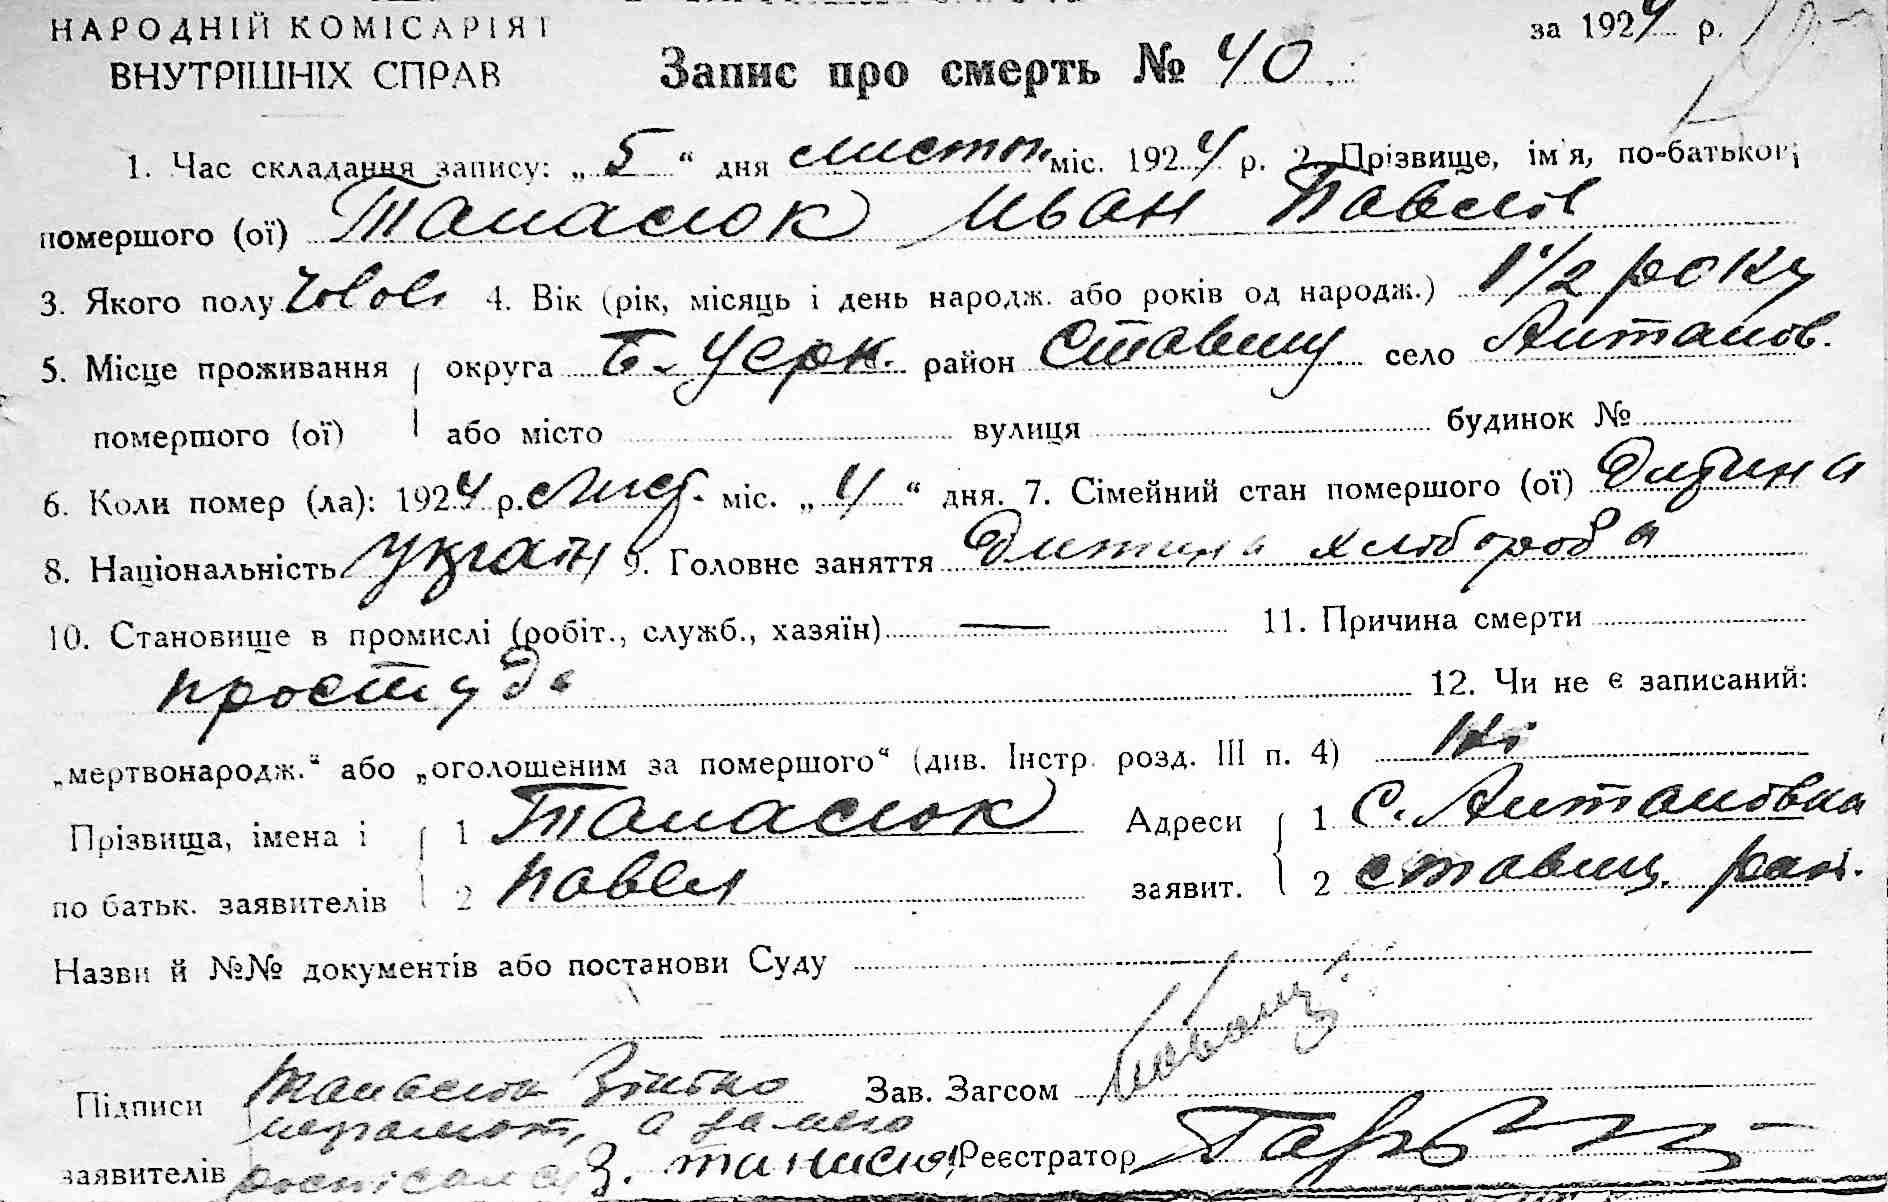 НАРОДНІЙ КОМІСАРІЯТ
ВНУТРІШНІХ СПРАВ
за 1924 р.
Запис про смерть № 40
1. Час складання запису: „ 5 “ дня листоп. міс. 1924 р. 2. Прізвище, ім'я, по-батькові
помершого (ої) Танасюк Иван Павлов
3. Якого полу Чолов 4. Вік (рік, місяць і день народж. або років од народж.) 1 1/2 року
5. Місце проживання помершого (ої) округа Б-Церк. район Ставищ село Антонов.
або місто вулиця будинок №
6. Коли помер (ла): 1924 р. Лист. міс. „ 4 “ дня. 7. Сімейний стан помершого (ої) Дитина
8. Національність україн 9. Головне заняття Дитина хлібороба
10. Становище в промислі (робіт., служб., хазяїн) — 11. Причина смерти
простуда 12. Чи не є записаний:
„мертвонародж.“ або „оголошеним за помершого“ (див. Інстр. розд. III п. 4) Ні
Прізвища, імена і 1 Танасюк Адреси 1 С. Антоновка
по батьк. заявителів 2 Павел заявит. 2 ставищ. рай.
Назви й №№ документів або постанови Суду
Підписи Танасюк Зінько Зав. Загсом
неграмот, а за него
заявителів росписался З. Танасюк Реєстратор